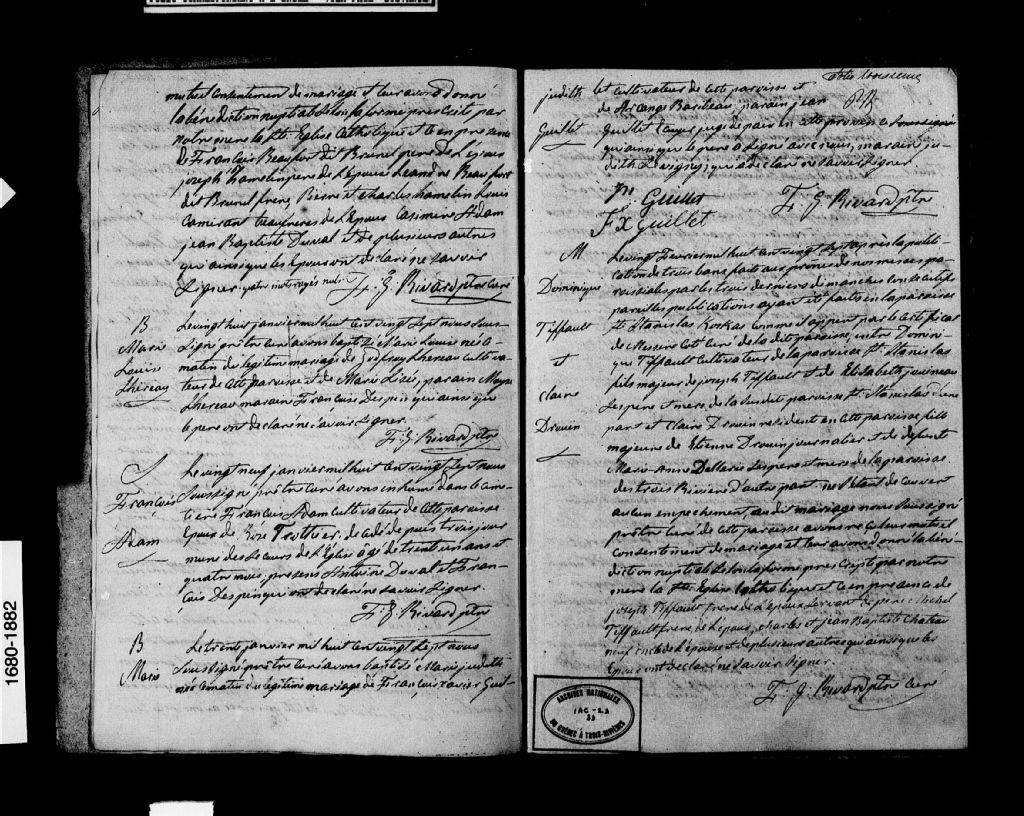 mutuel consentement de mariage et leur avons donné
la bénédiction nuptiale selon la forme prescrite par
notre mère la Ste Eglise Catholique et ce en presence
de François Beaufort dit Brunel pere de l'epoux
joseph hamelin pere de l'epouse Leandre Beaufort
dit Brunel frere, Pierre et charles hamelin Louis
beaufreres de l'epoux Casimire Adam
jean Baptiste Duval et de plusieurs autres
qui ainsi que les epoux ont declaré ne savoir
signer quatre mots rayés nuls
F. G. Rivard ptre curé
B
Marie
Louise
Lhereau
Le vingt huit janvier mil huit cent vingt sept nous sous-
signé prêtre curé avons baptisé Marie Louise née ce
matin du legitime mariage de Godfroy Lhereau cultiva-
teur de cette paroisse et de Marie Lizé, parain
Lhereau maraine Françoise Despins qui ainsi que
le pere ont declaré ne savoir signer.
F. G. Rivard ptr
S
François
Adam
Le vingt neuf janvier mil huit cent vingt sept nous
soussigné prêtre curé avons inhumé dans le cime-
tiere François Adam cultivateur de cette paroisse
epoux de Rose Trottier, decedé depuis trois jours
muni des secours de l'Eglise agé de trente un ans et
quatre mois, presens Antoine Duval et Fran-
çois Despins qui ont declaré ne savoir signer.
F. G. Rivard ptr
B
Marie
Le trente janvier mil huit cent vingt sept nous
soussigné prêtre curé avons baptisé Marie judith
née ce matin du legitime mariage de François Xavier Guil-
folio troisieme
judith
Guillet
let cultivateur de cette paroisse et
de Arcange Bariteau, parain jean
Guillet Ecuyer juge de paix en cette province soussigné
qui ainsi que le pere a signé avec nous, maraine ju-
dith Levigny qui a declaré ne savoir signer
Guillet
F. G. Rivard ptr
FX Guillet
M
Dominique
Tiffault
et
claire
Drouin
Le vingt Fevrier mil huit cent vingt sept après la publi-
cation de trois bans faite aux prônes de nos messes pa-
roissiales par les trois derniers dimanches consecutifs
pareilles publications ayant été faites en la paroisse
St. Stanislas Koskas comme il appert par le certificat
de Messire curé de la dite paroisse, entre Domini-
que Tiffault cultivateur de la paroisse St. Stanislas
fils majeur de joseph Tiffault et de Elisabeth juineau
ses pere et mere de la susdite paroisse St. Stanislas d'une
part et claire Drouin residente en cette paroisse fille
majeure de Etienne Drouin journalier et de defunte
Marie Anne Dellerie ses pere et mere de la paroisse
des trois Rivieres d'autre part ne s'etant decouvert
aucun empechement au dit mariage nous soussigné
prêtre curé de cette paroisse avons reçu leur mutuel
consentement de mariage et leur avons donné la béné-
diction nuptiale selon la forme prescripte par notre
mere la Ste. Eglise Catholique et ce en presence de
joseph Tiffault frere de l'epoux servant de pere Michel
Tiffault frere de l'epoux, charles et jean Baptiste Chateau
neuf oncle de l'epouse et de plusieurs autres qui ainsi que les
epoux ont declaré ne savoir signer.
F. G. Rivard ptr curé
ARCHIVES NATIONALES
1AC-2.3
33
DU QUÉBEC À TROIS-RIVIÈRES
1680-1882